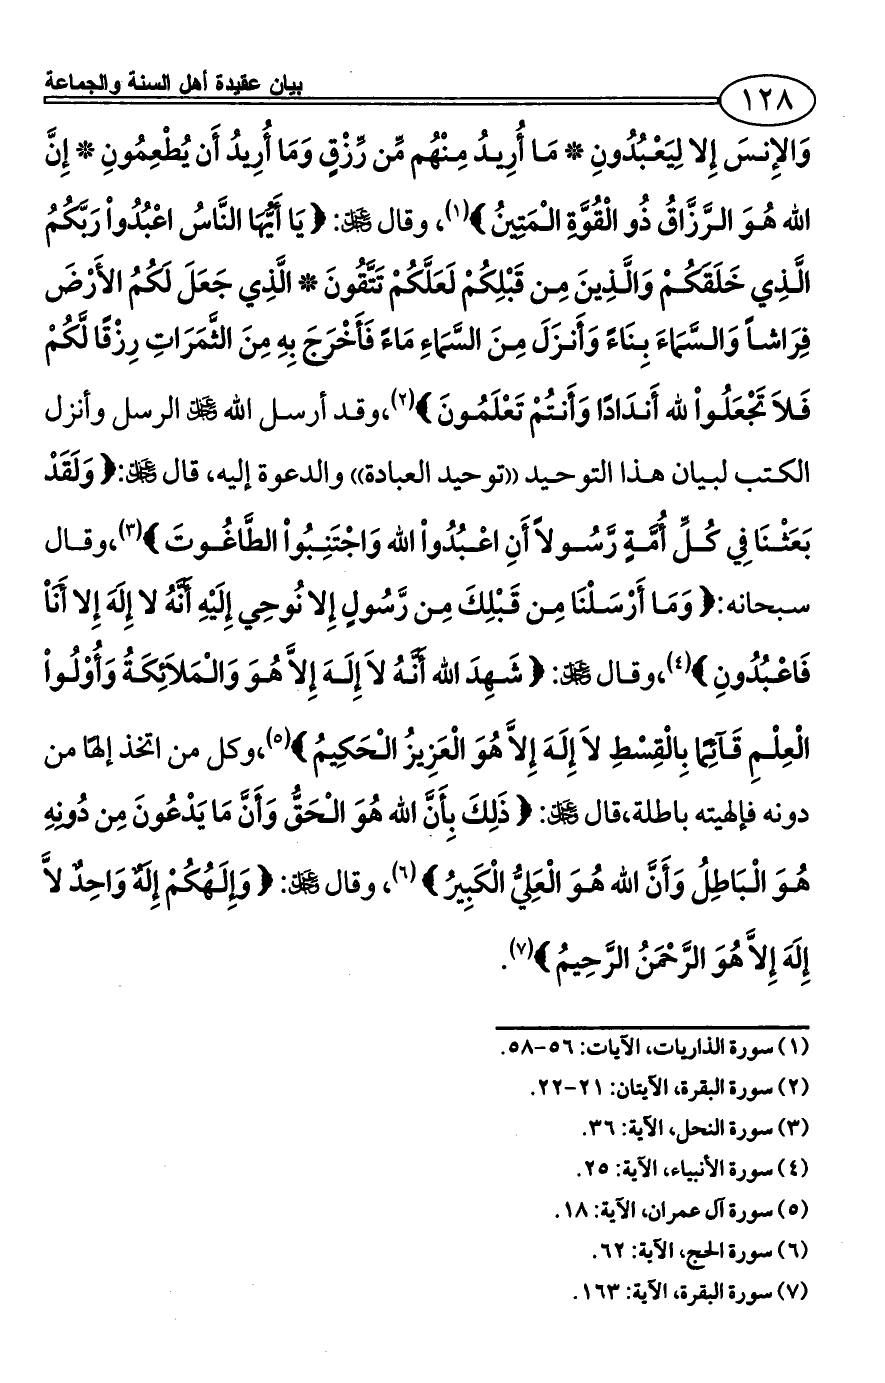 ١٢٨
بيان عقيدة أهل السنة والجماعة
وَالإِنسَ إِلا لِيَعْبُدُونِ * مَا أُرِيدُ مِنْهُم مِّن رِّزْقٍ وَمَا أُرِيدُ أَن يُطْعِمُونِ * إِنَّ
الله هُوَ الرَّزَّاقُ ذُو الْقُوَّةِ الْمَتِينُ﴾(١)، وقال ﷻ: ﴿يَا أَيُّهَا النَّاسُ اعْبُدُواْ رَبَّكُمُ
الَّذِي خَلَقَكُمْ وَالَّذِينَ مِن قَبْلِكُمْ لَعَلَّكُمْ تَتَّقُونَ * الَّذِي جَعَلَ لَكُمُ الأَرْضَ
فِرَاشاً وَالسَّمَاءَ بِنَاءً وَأَنزَلَ مِنَ السَّمَاءِ مَاءً فَأَخْرَجَ بِهِ مِنَ الثَّمَرَاتِ رِزْقًا لَّكُمْ
فَلاَ تَجْعَلُواْ لله أَندَادًا وَأَنتُمْ تَعْلَمُونَ﴾(٢)،وقد أرسل الله ﷻ الرسل وأنزل
الكتب لبيان هذا التوحيد ((توحيد العبادة)) والدعوة إليه، قال ﷻ:﴿وَلَقَدْ
بَعَثْنَا فِي كُلِّ أُمَّةٍ رَّسُولاً أَنِ اعْبُدُواْ الله وَاجْتَنِبُواْ الطَّاغُوتَ﴾(٣)،وقال
سبحانه:﴿وَمَا أَرْسَلْنَا مِن قَبْلِكَ مِن رَّسُولٍ إِلا نُوحِي إِلَيْهِ أَنَّهُ لا إِلَهَ إِلا أَنَاْ
فَاعْبُدُونِ﴾(٤)،وقال ﷻ: ﴿شَهِدَ الله أَنَّهُ لاَ إِلَهَ إِلاَّ هُوَ وَالْمَلاَئِكَةُ وَأُوْلُواْ
الْعِلْمِ قَآئِمًا بِالْقِسْطِ لاَ إِلَهَ إِلاَّ هُوَ الْعَزِيزُ الْحَكِيمُ﴾(٥)،وكل من اتخذ إلهًا من
دونه فإلهيته باطلة،قال ﷻ: ﴿ذَلِكَ بِأَنَّ الله هُوَ الْحَقُّ وَأَنَّ مَا يَدْعُونَ مِن دُونِهِ
هُوَ الْبَاطِلُ وَأَنَّ الله هُوَ الْعَلِيُّ الْكَبِيرُ﴾(٦)، وقال ﷻ: ﴿وَإِلَهُكُمْ إِلَهٌ وَاحِدٌ لاَّ
إِلَهَ إِلاَّ هُوَ الرَّحْمَنُ الرَّحِيمُ﴾(٧).
(١) سورة الذاريات، الآيات: ٥٦-٥٨.
(٢) سورة البقرة، الآيتان: ٢١-٢٢.
(٣) سورة النحل، الآية: ٣٦.
(٤) سورة الأنبياء، الآية: ٢٥.
(٥) سورة آل عمران، الآية: ١٨.
(٦) سورة الحج، الآية: ٦٢.
(٧) سورة البقرة، الآية: ١٦٣.